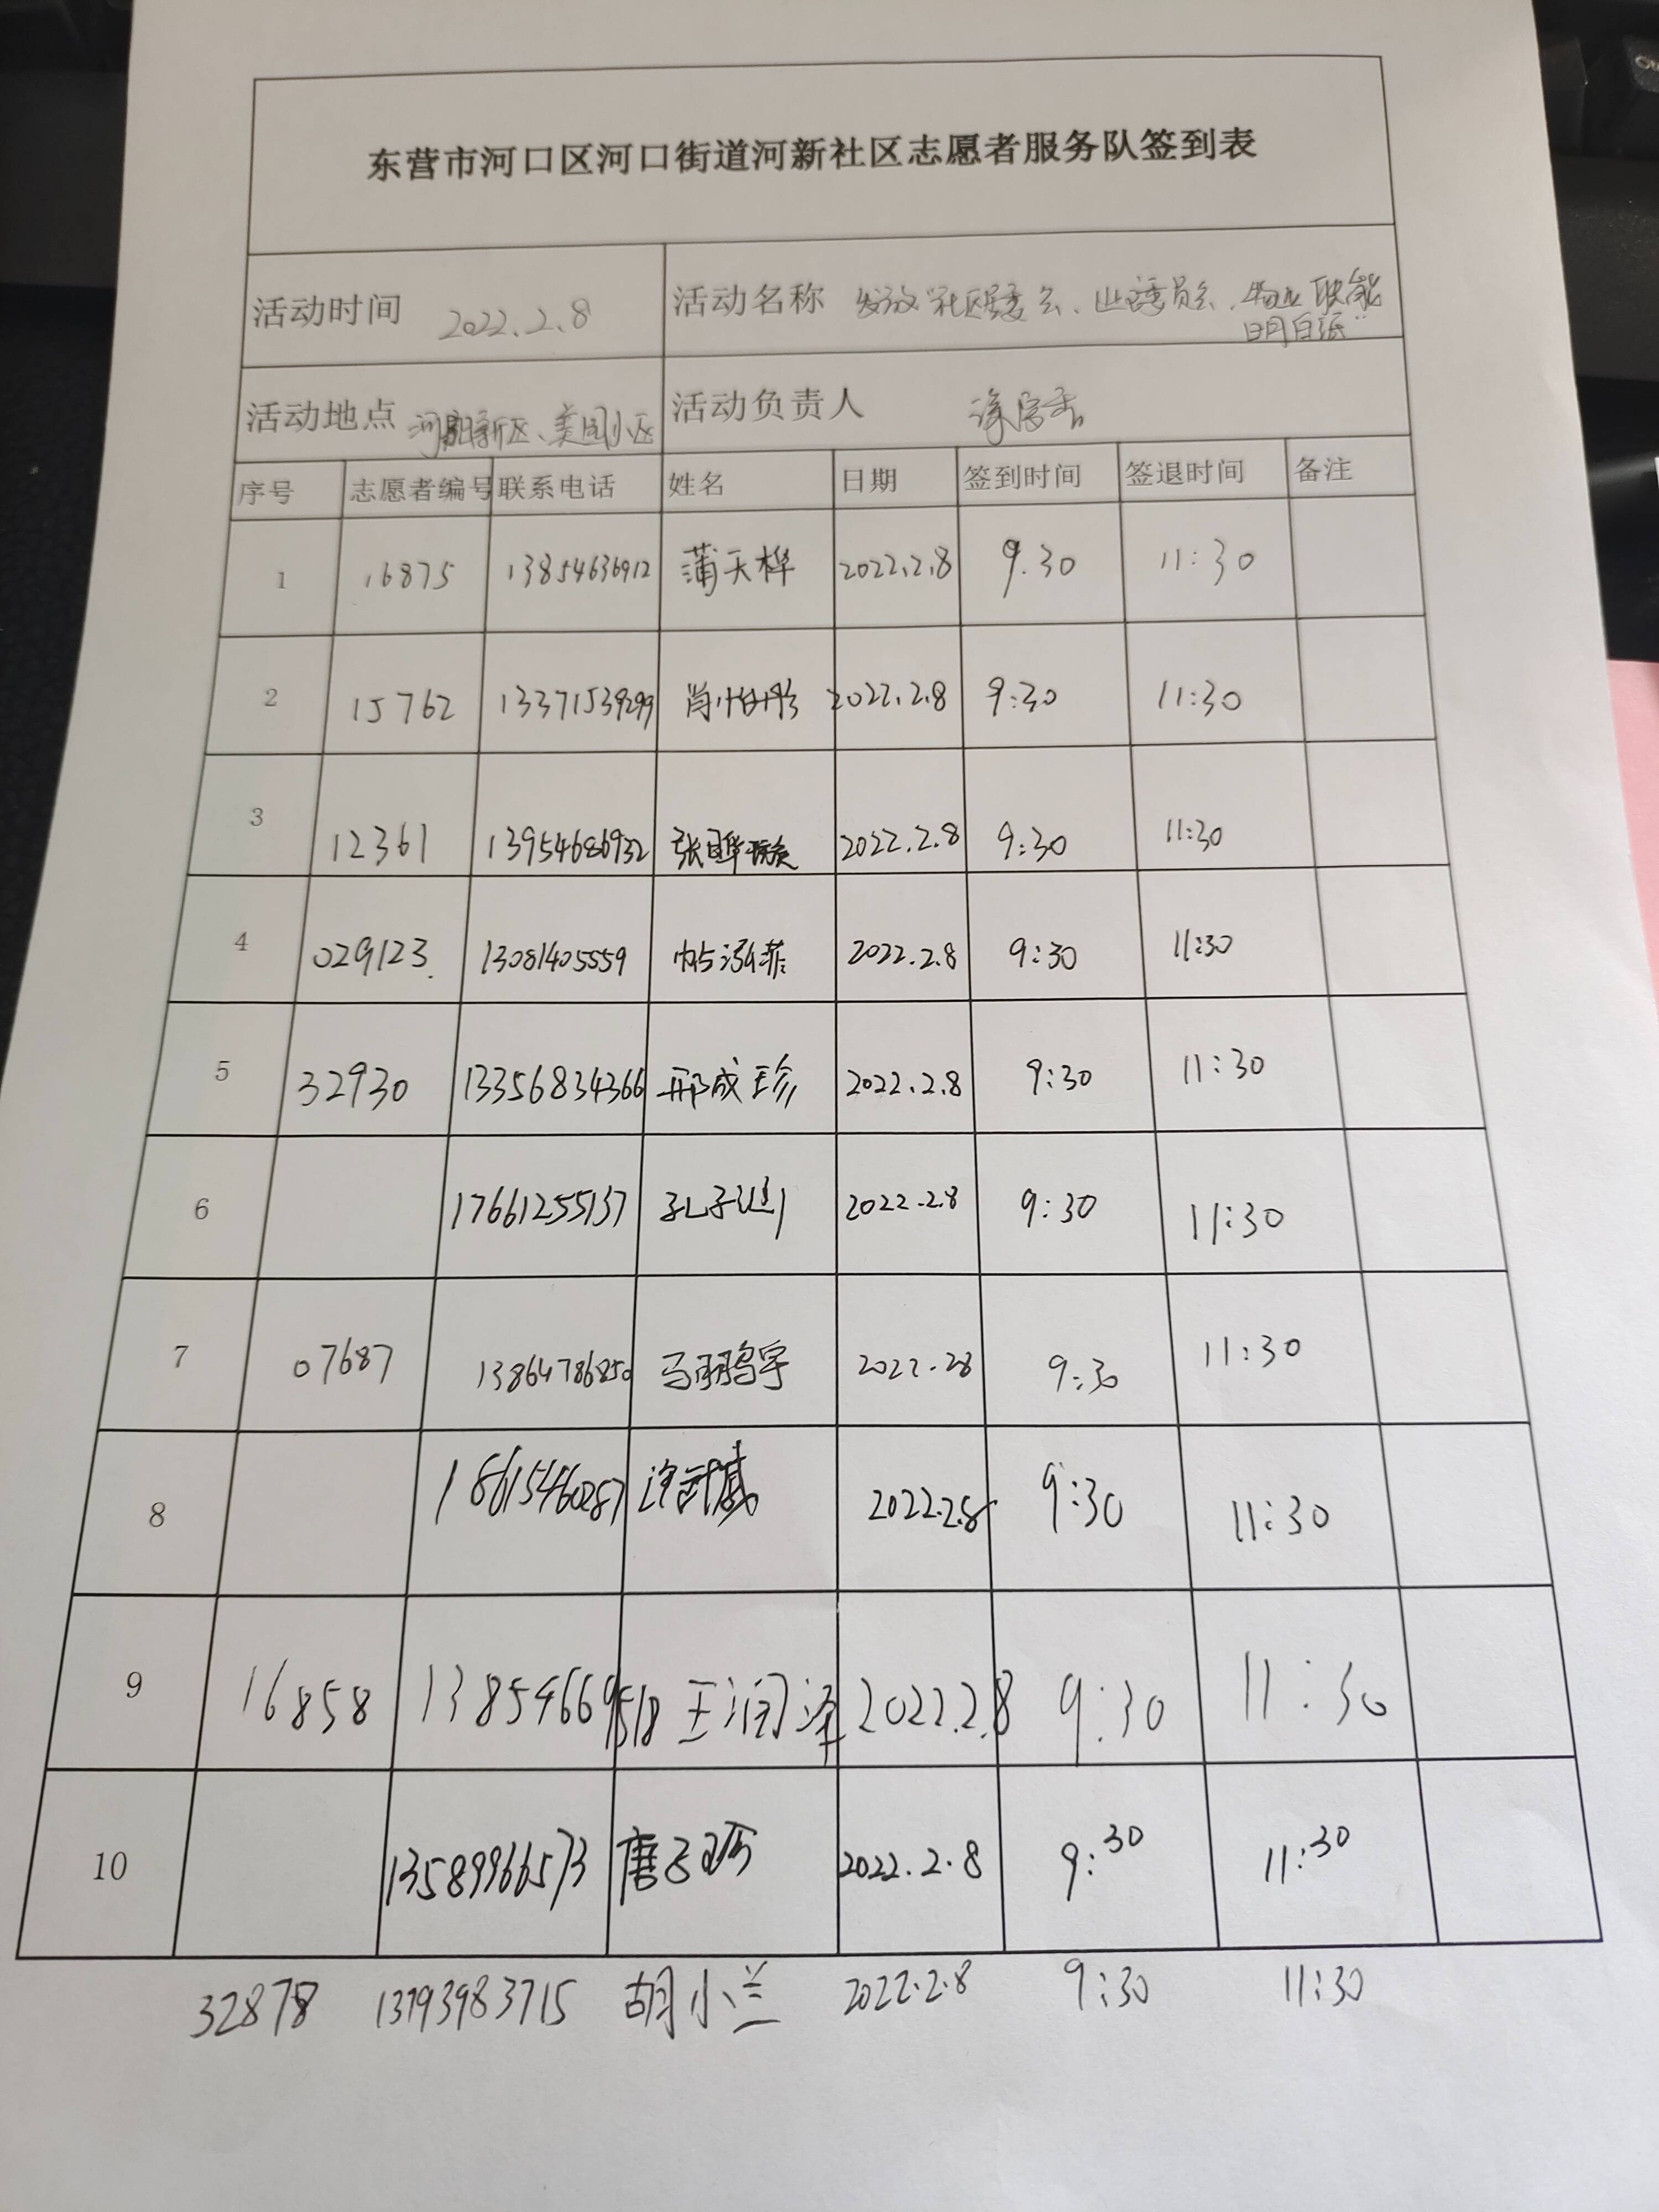 东营市河口区河口街道河新社区志愿者服务队签到表
活动时间 2022.2.8 活动名称 发放"社区居委会、业主委员会、物业职能
明白纸"
活动地点 河阳新区、美园小区 活动负责人
序号 志愿者编号 联系电话 姓名 日期 签到时间 签退时间 备注
1 16875 13854636912 蒲天桦 2022.2.8 9.30 11:30
2 15762 13371539299 肖怡彤 2022.2.8 9:30 11:30
3 12361 13954686932 张 2022.2.8 9:30 11:30
4 029123 13081405559 2022.2.8 9:30 11:30
5 32930 13356834366 邢成珍 2022.2.8 9:30 11:30
6 17661255137 孔子 2022.2.8 9:30 11:30
7 07687 13864786850 马鹏宇 2022.2.8 9:30 11:30
8 18615460287 2022.2.8 9:30 11:30
9 16858 13854669518 王润泽 2022.2.8 9:30 11:30
10 13589966573 唐 2022.2.8 9:30 11:30
32878 13793983715 胡小兰 2022.2.8 9:30 11:30